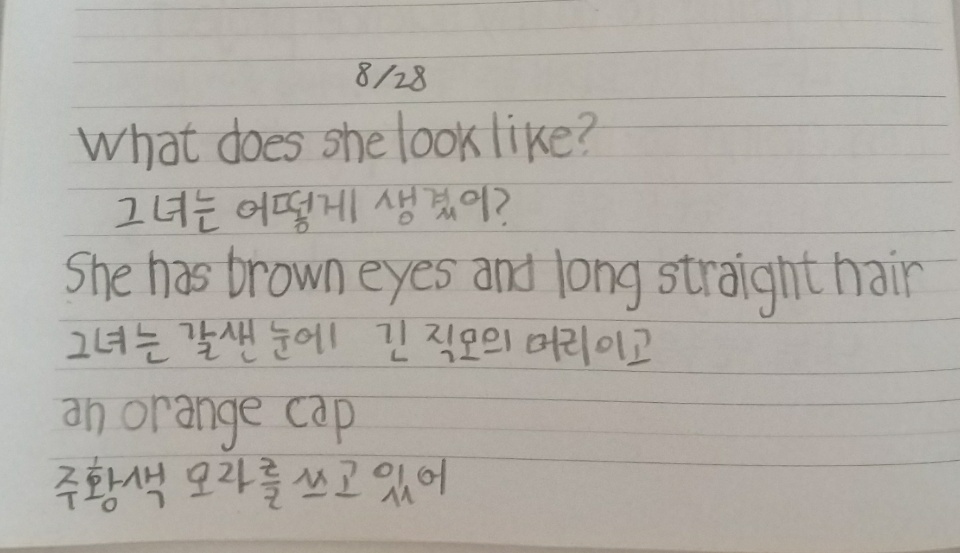 8/28
What does she look like?
그녀는 어떻게 생겼어?
She has brown eyes and long straight hair
그녀는 갈샌 눈에 긴 직모의 머리이고
an orange cap
주황색 모라를 쓰고 있어